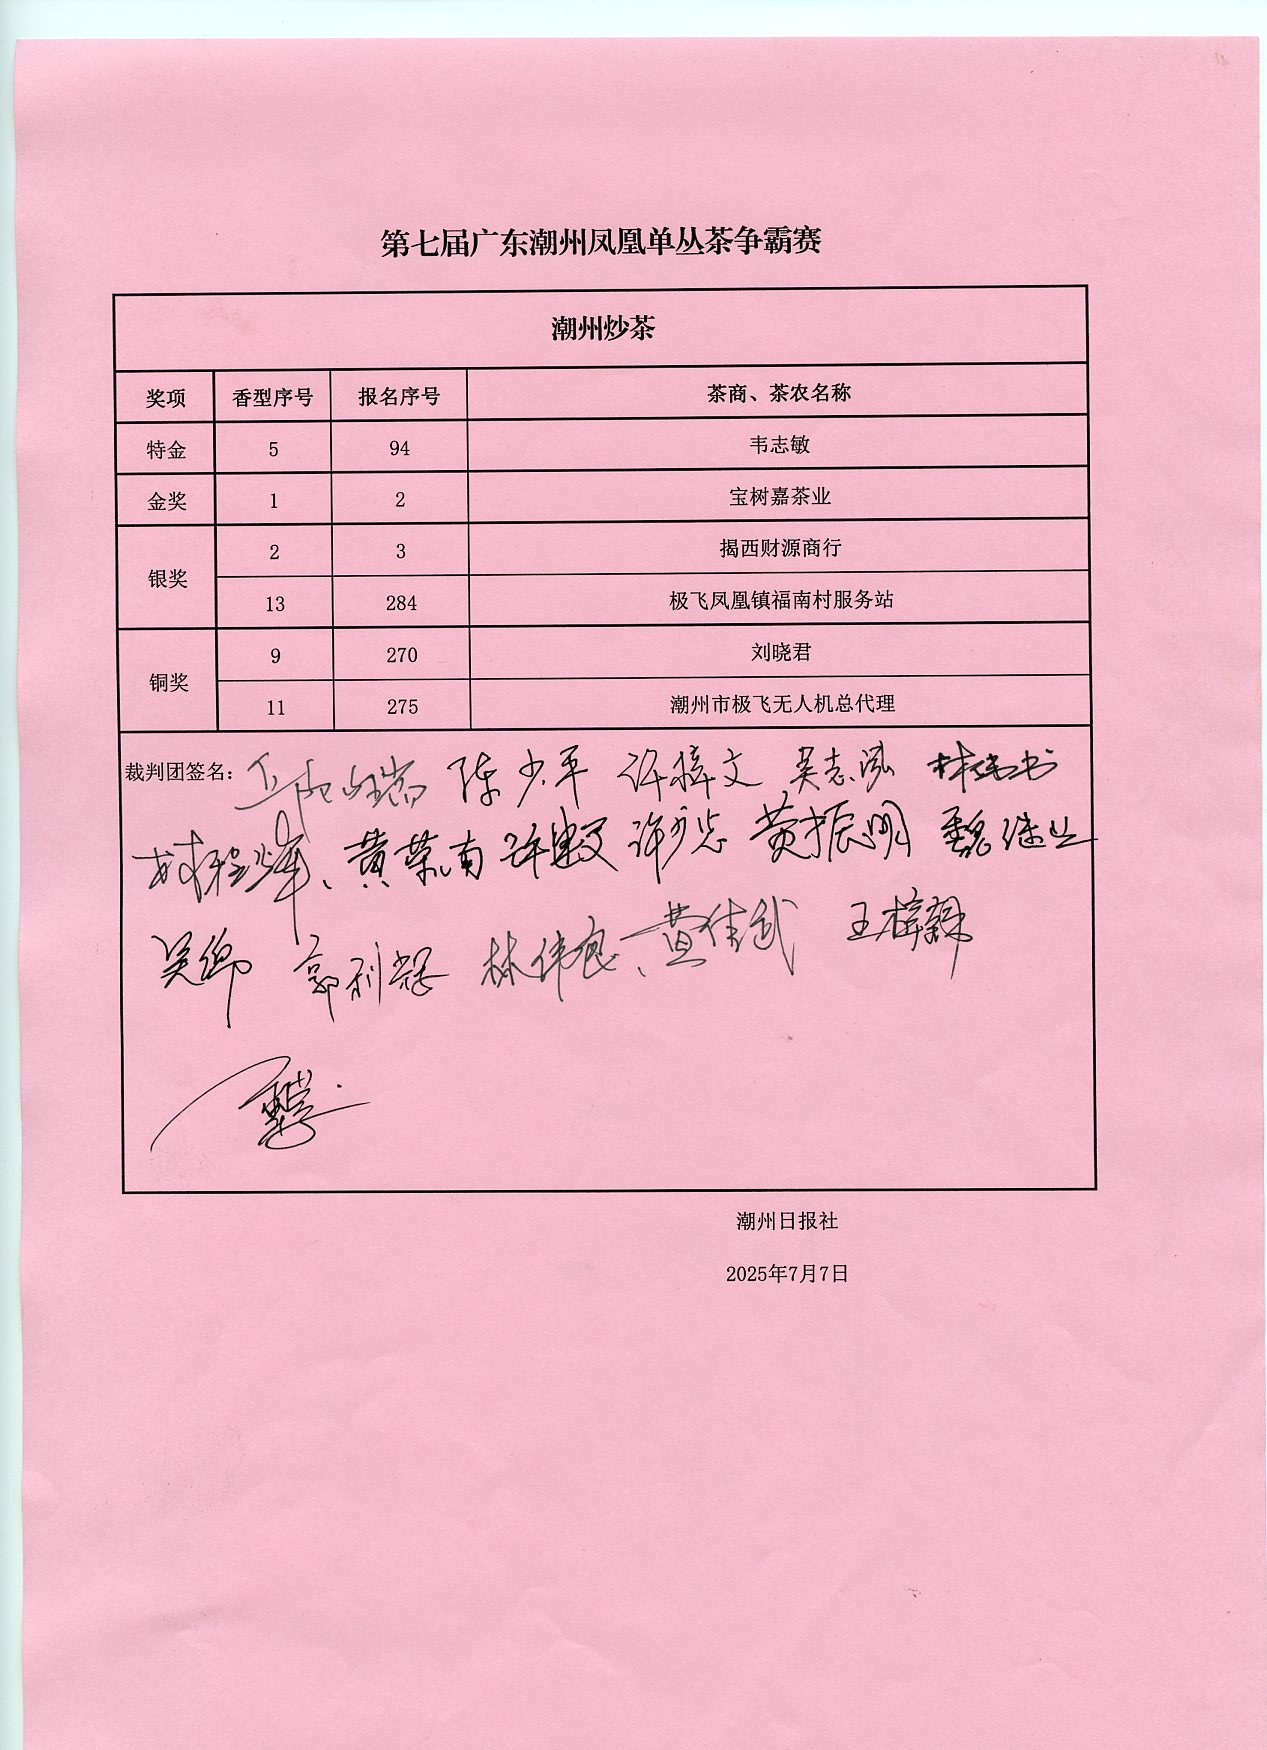 第七届广东潮州凤凰单丛茶争霸赛
潮州炒茶
奖项 香型序号 报名序号 茶商、茶农名称
特金 5 94 韦志敏
金奖 1 2 宝树嘉茶业
银奖 2 3 揭西财源商行
13 284 极飞凤凰镇福南村服务站
铜奖 9 270 刘晓君
11 275 潮州市极飞无人机总代理
裁判团签名: 陈少平 许梓文 吴志泓
黄荣南 黄振明
郭利 林伟良、黄佳武 王梓
潮州日报社
2025年7月7日